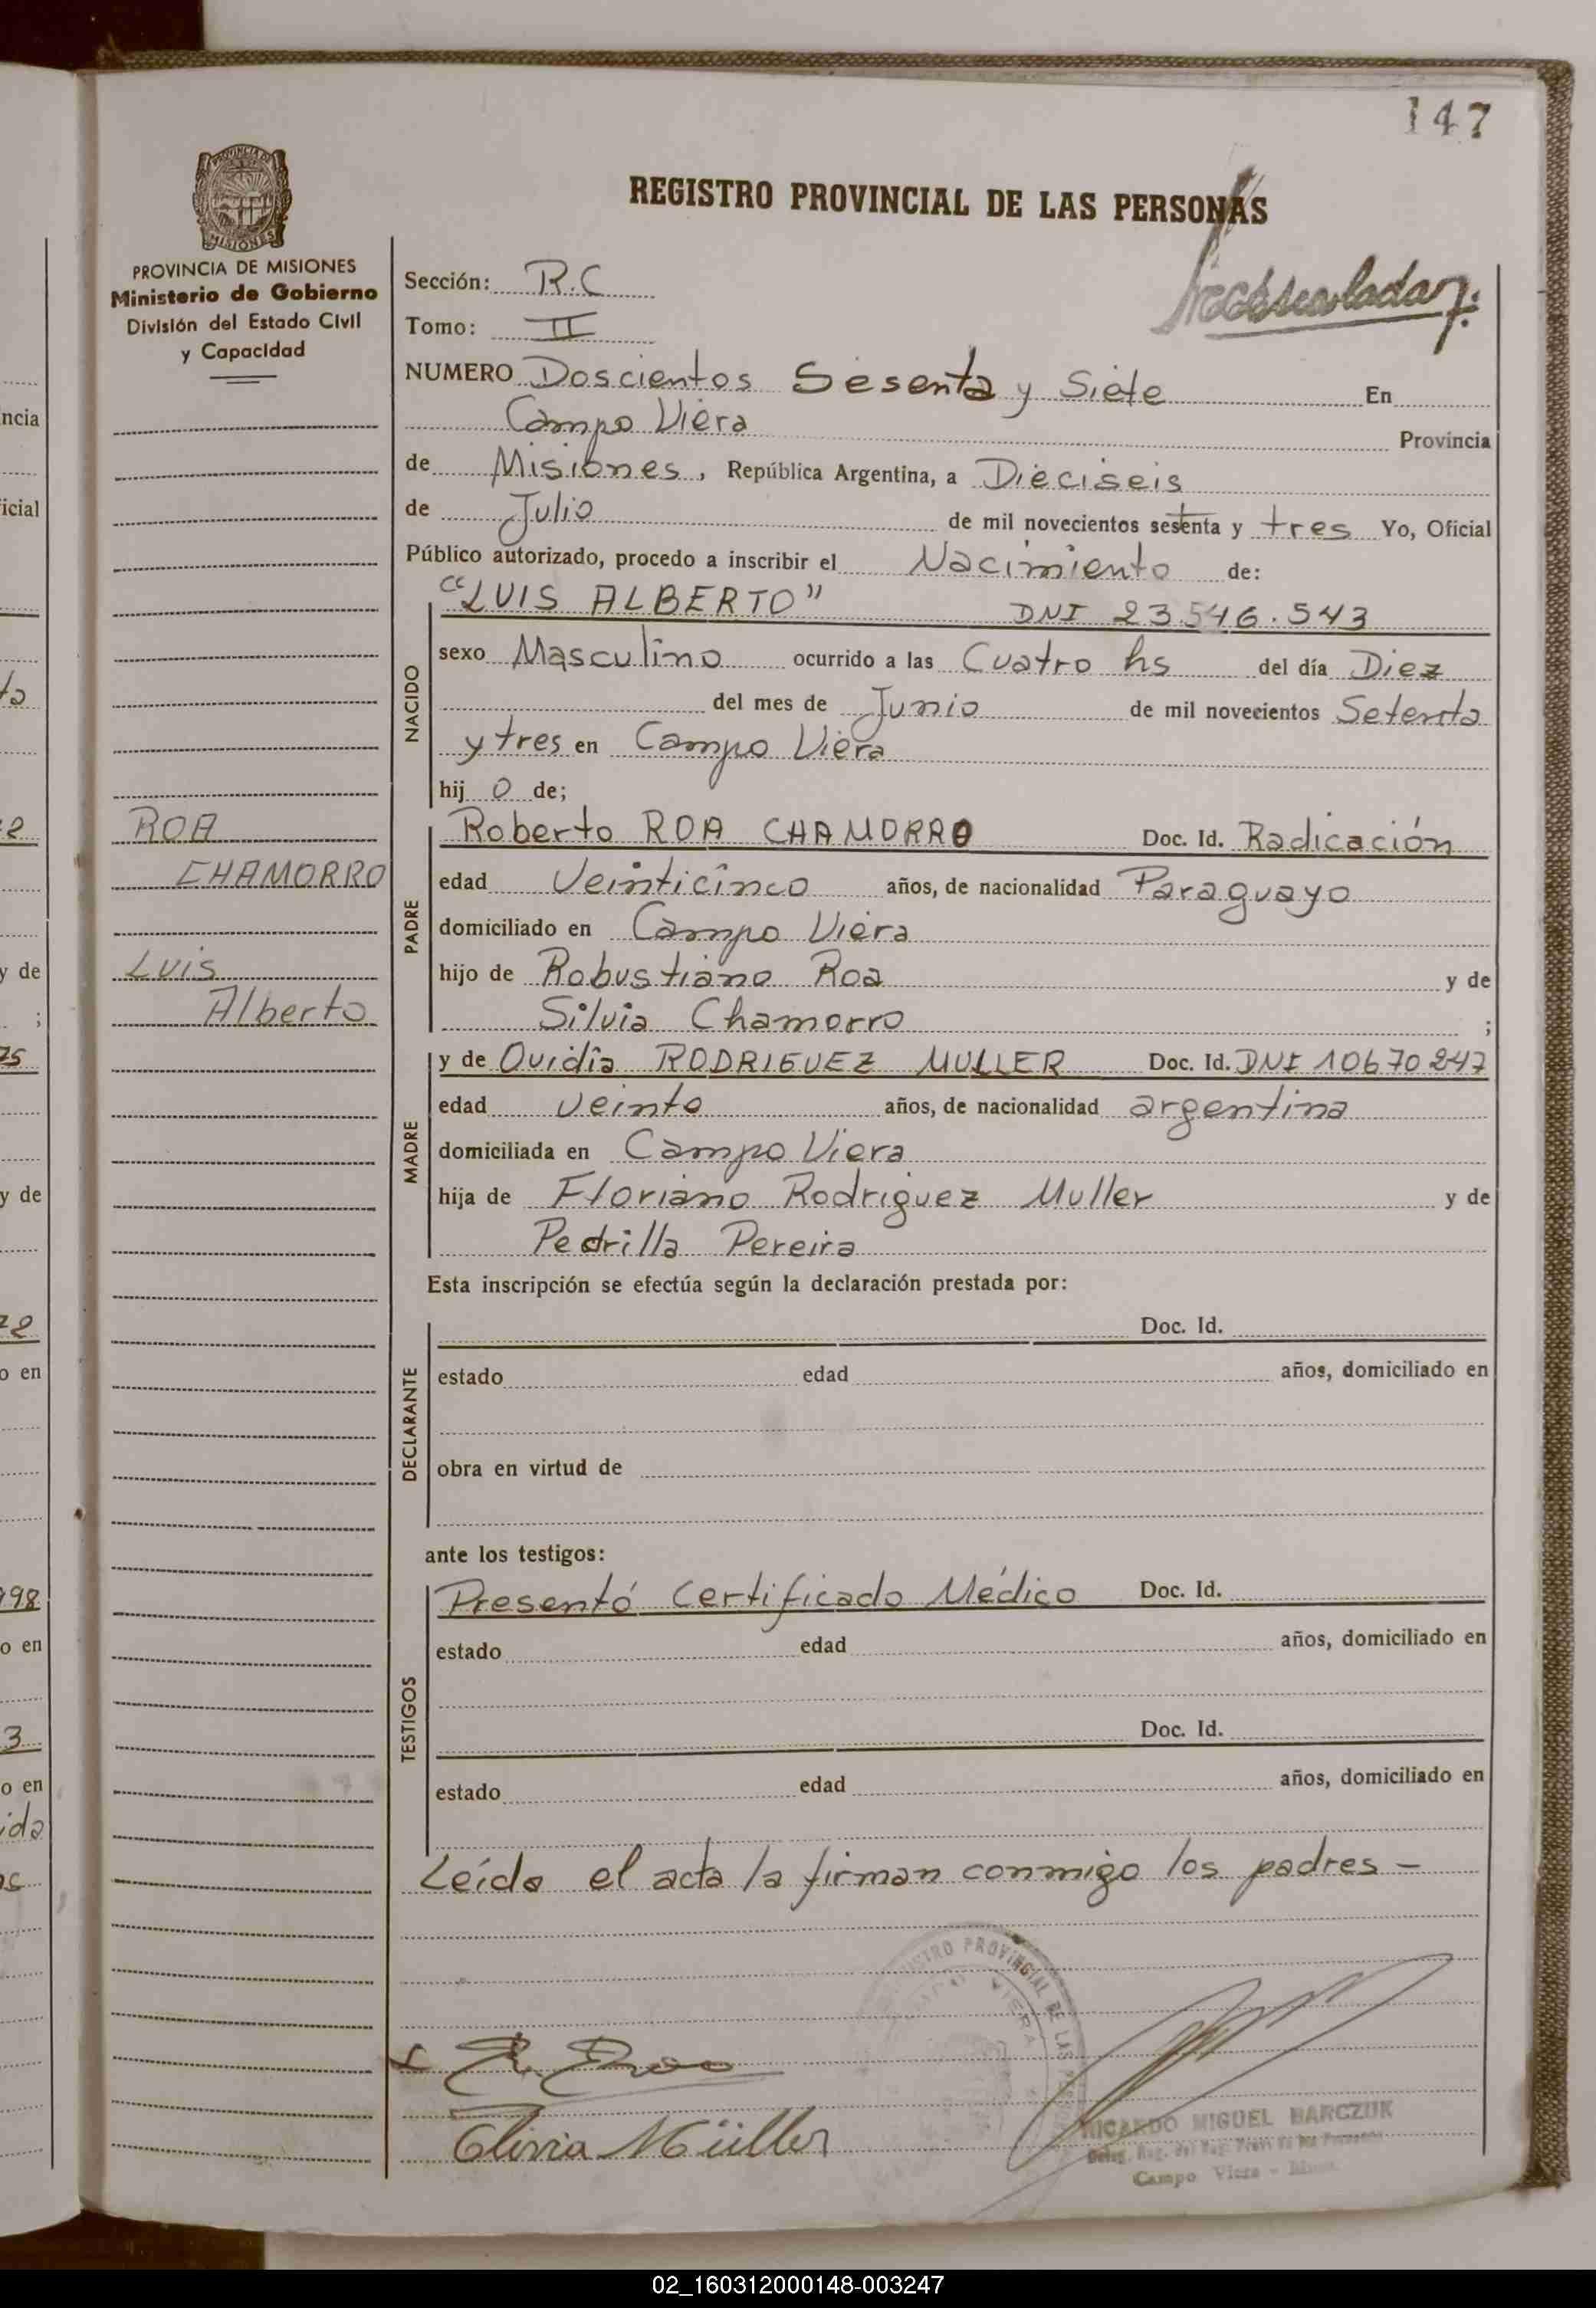 147
REGISTRO PROVINCIAL DE LAS PERSONAS
PROVINCIA DE MISIONES
MISIONES
PROVINCIA DE MISIONES
Ministerio de Gobierno
División del Estado Civil
y Capacidad
Sección: R.C
Tomo: II
NUMERO Doscientos Sesenta y Siete En
Campo Viera Provincia
de Misiones, República Argentina, a Dieciseis
de Julio de mil novecientos setenta y tres Yo, Oficial
Público autorizado, procedo a inscribir el Nacimiento de:
NACIDO
"LUIS ALBERTO" DNI 23.546.543
sexo Masculino ocurrido a las Cuatro hs del día Diez
del mes de Junio de mil novecientos Setenta
y tres en Campo Viera
hij o de;
ROA
CHAMORRO
LUIS
Alberto
PADRE
Roberto ROA CHAMORRO Doc. Id. Radicación
edad Veinticinco años, de nacionalidad Paraguayo
domiciliado en Campo Viera
hijo de Robustiano Roa y de
Silvia Chamorro ;
MADRE
y de Ovidia RODRIGUEZ MULLER Doc. Id. DNI 10670247
edad veinte años, de nacionalidad argentina
domiciliada en Campo Viera
hija de Floriano Rodriguez Muller y de
Pedrilla Pereira
Esta inscripción se efectúa según la declaración prestada por:
DECLARANTE
Doc. Id.
estado edad años, domiciliado en
obra en virtud de
ante los testigos:
TESTIGOS
Presentó Certificado Médico Doc. Id.
estado edad años, domiciliado en
Doc. Id.
estado edad años, domiciliado en
Leída el acta la firman conmigo los padres -
REGISTRO PROVINCIAL DE LAS PERSONAS
VIERA
R. Roa
Müller
RICARDO MIGUEL BARCZUK
Campo Viera
ncia
icial
y de
;
75
y de
o en
198
o en
3
o en
02_160312000148-003247